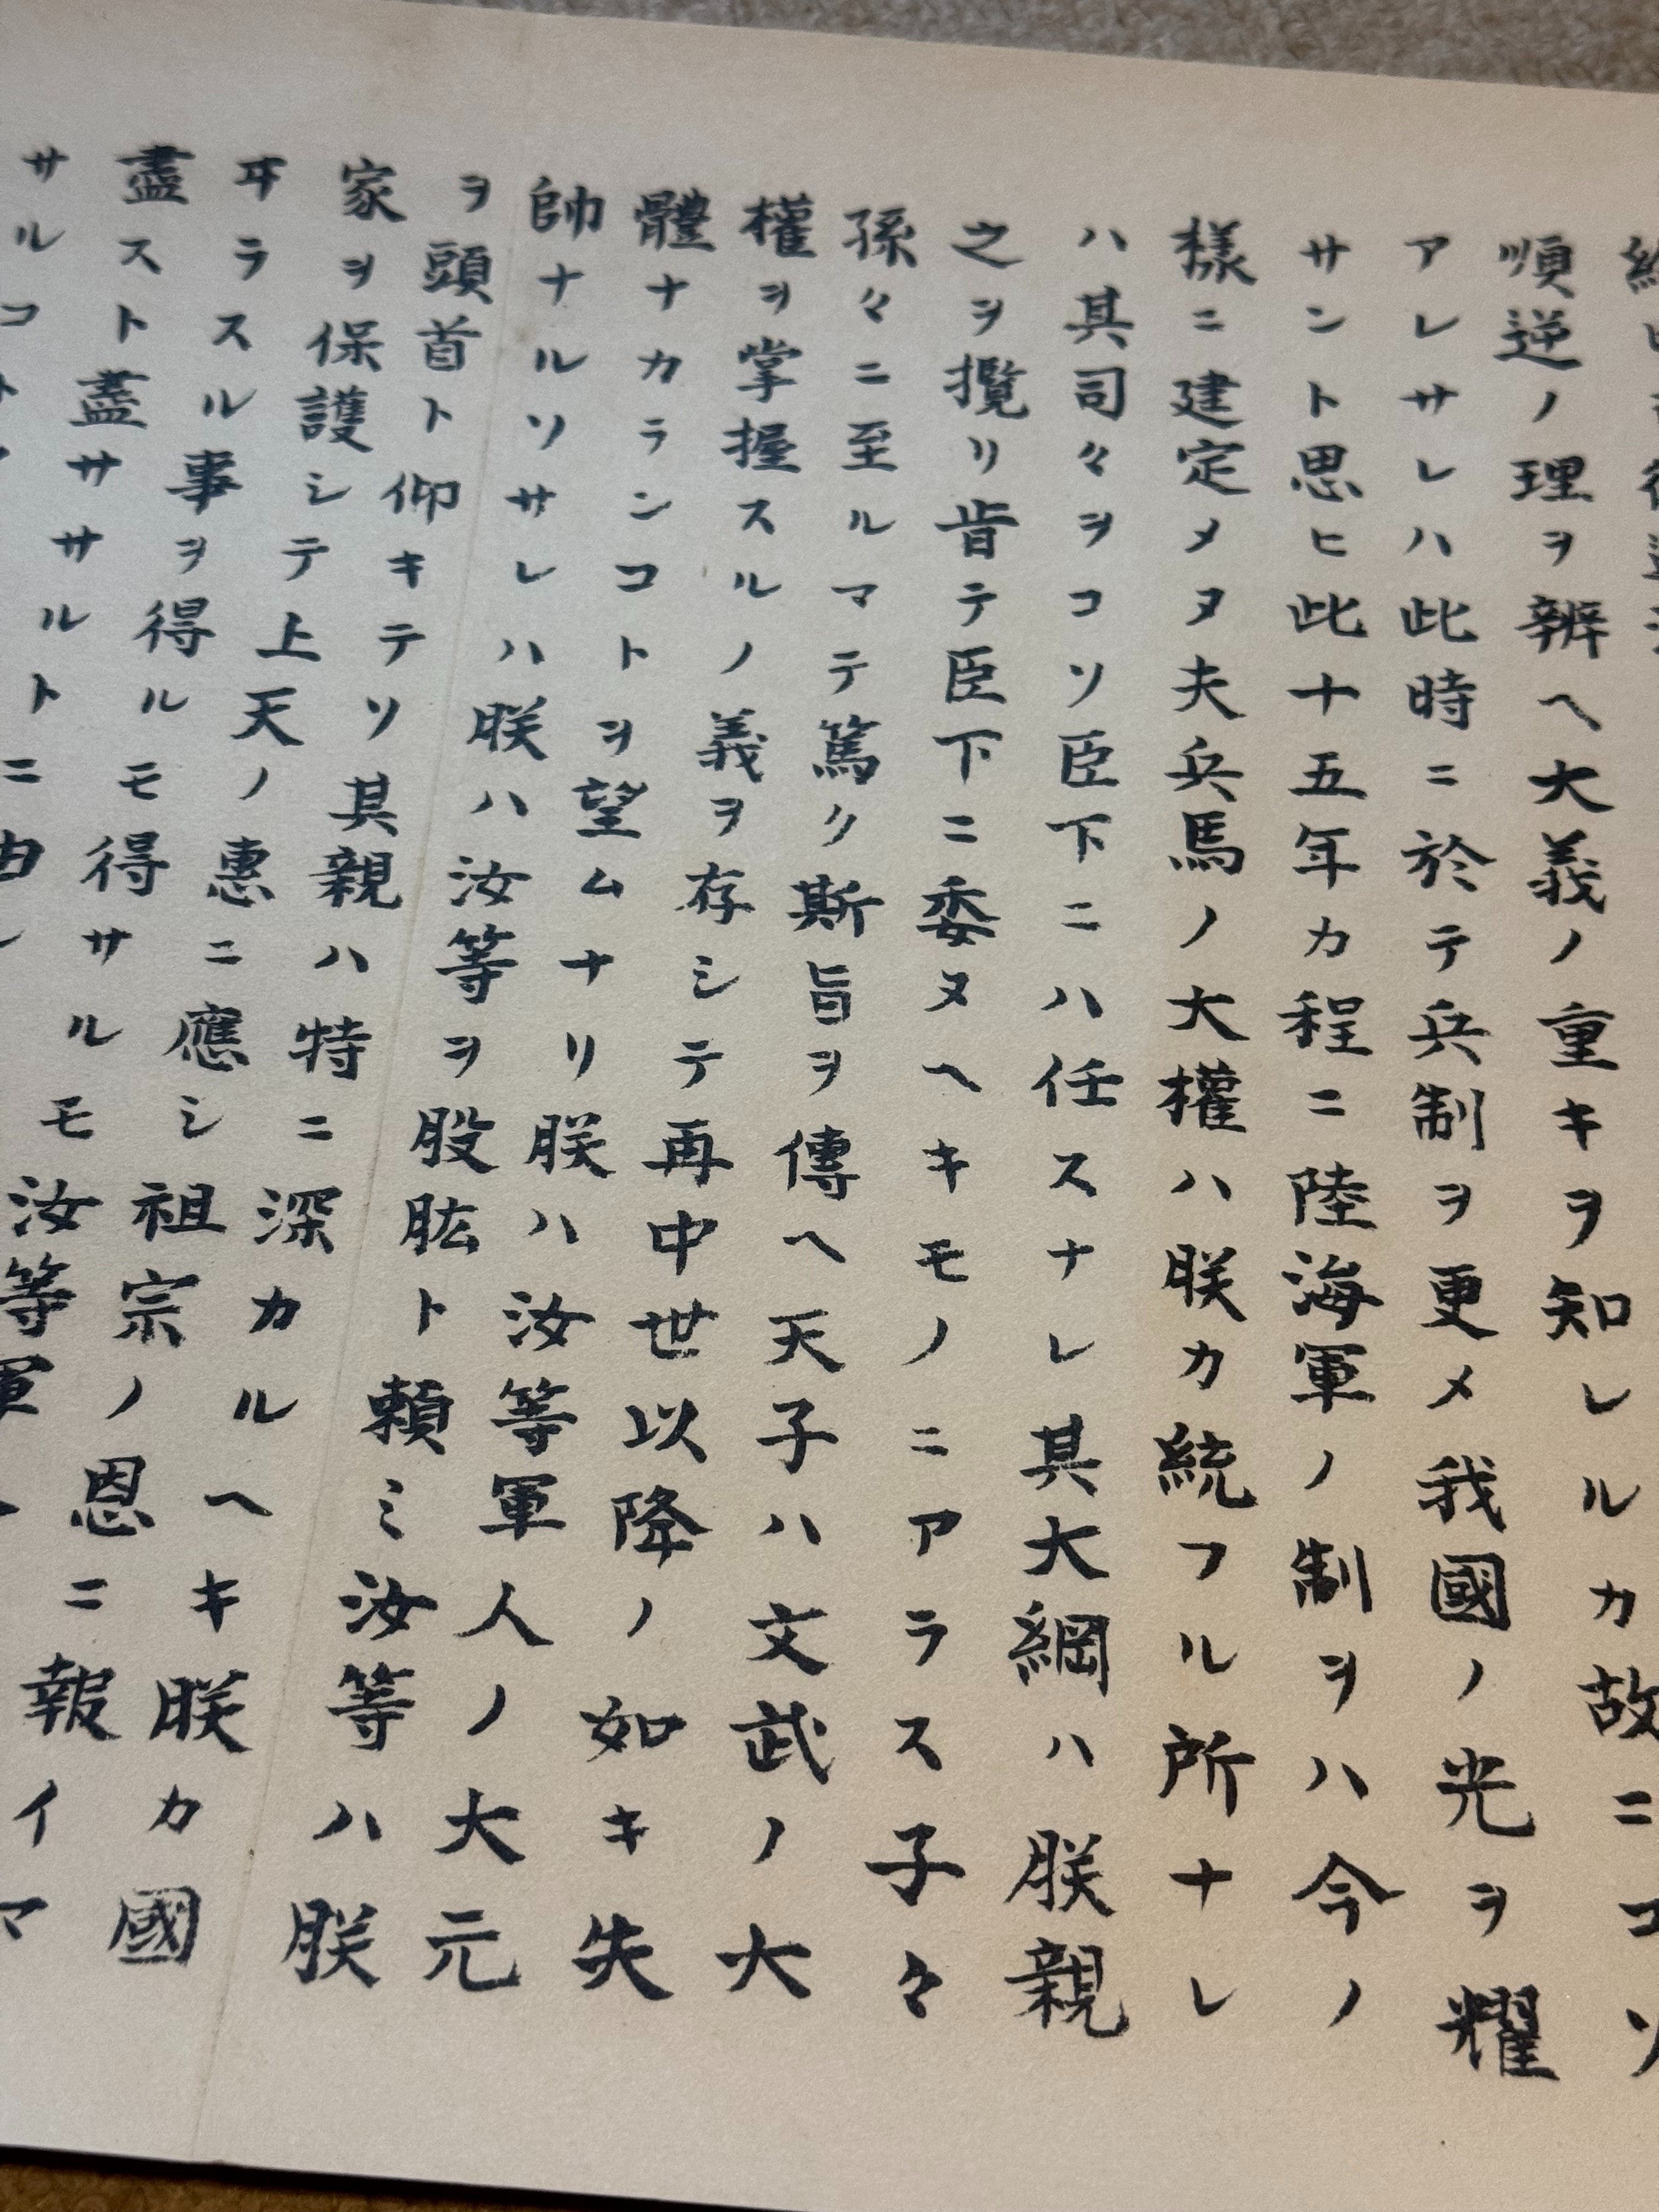 順逆ノ理ヲ辨ヘ大義ノ重キヲ知レルカ故ニコソ
アレサレハ此時ニ於テ兵制ヲ更メ我國ノ光ヲ耀
サント思ヒ此十五年カ程ニ陸海軍ノ制ヲハ今ノ
樣ニ建定メヌ夫兵馬ノ大權ハ朕カ統フル所ナレ
ハ其司々ヲコソ臣下ニハ任スナレ其大綱ハ朕親
之ヲ攬リ肯テ臣下ニ委ヌヘキモノニアラス子々
孫々ニ至ルマテ篤ク斯旨ヲ傳ヘ天子ハ文武ノ大
權ヲ掌握スルノ義ヲ存シテ再中世以降ノ如キ失
體ナカランコトヲ望ムナリ朕ハ汝等軍人ノ大元
帥ナルソサレハ朕ハ汝等ヲ股肱ト頼ミ汝等ハ朕
ヲ頭首ト仰キテソ其親ハ特ニ深カルヘキ朕カ國
家ヲ保護シテ上天ノ惠ニ應シ祖宗ノ恩ニ報イマ
ヰラスル事ヲ得ルモ得サルモ汝等軍
盡スト盡ササルトニ由
サルコ